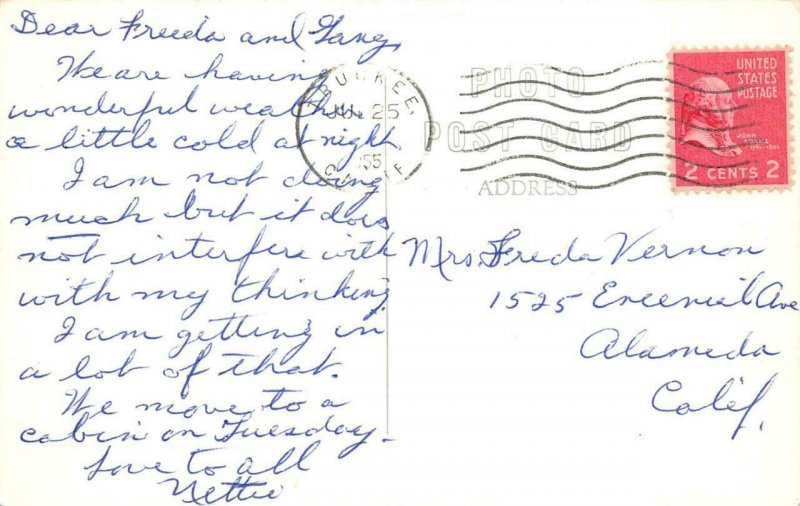 Dear Freeda and Gang,
We are having
wonderful weather
a little cold at night
I am not doing
much but it does
not interfere with
with my thinking
I am getting in
a lot of that.
We move to a
cabin on Tuesday-
Love to all
Nettie
TRUCKEE,
JUL 25
1955
CALIF.
PHOTO
POST CARD
ADDRESS
UNITED
STATES
POSTAGE
JOHN
ADAMS
1797-1801
2 CENTS 2
Mrs. Freda Vernon
1525 Ave
Alameda
Calif.